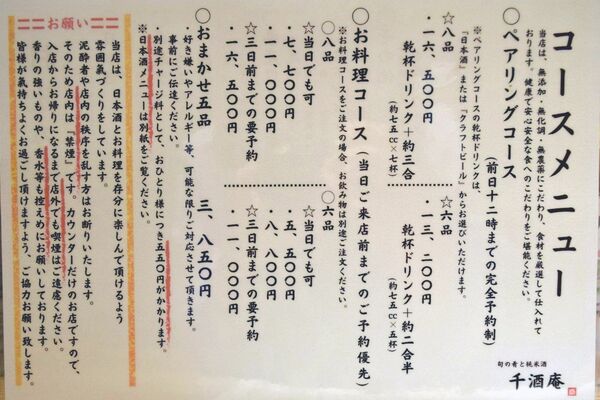 コースメニュー
当店は、無添加・無化調・無農薬にこだわり、食材を厳選して仕入れて
おります。健康で安心安全な食へのこだわりをご堪能ください。
旬の肴と純米酒
千酒庵
〇ペアリングコース（前日十二時までの完全予約制）
※ペアリングコースの乾杯ドリンクは、
「日本酒」または「クラフトビール」からお選びいただけます。
☆八品
・一六、五〇〇円
乾杯ドリンク＋約三合
（約七五cc×七杯）
☆六品
・一三、二〇〇円
乾杯ドリンク＋約二合半
（約七五cc×五杯）
〇お料理コース（当日ご来店前までのご予約優先）
※お料理コースをご注文の場合、お飲み物は別途ご注文ください。
〇八品
☆当日でも可
・七、七〇〇円
☆三日前までの要予約
・一六、五〇〇円
〇六品
☆当日でも可
・五、五〇〇円
・八、八〇〇円
☆三日前までの要予約
・一一、〇〇〇円
〇おまかせ五品
三、八五〇円
・好き嫌いやアレルギー等、可能な限りご対応させて頂きます。
事前にご伝達ください。
・別途チャージ料として、おひとり様につき五五〇円がかかります。
※日本酒メニューは別紙をご覧ください。
〓お願い〓
当店は、日本酒とお料理を存分に楽しんで頂けるよう
雰囲気づくりをしています。
泥酔者や店内の秩序を乱す方はお断りいたします。
そのため店内は「禁煙」です。カウンターだけのお店ですので、
入店からお帰りになるまで店外でも喫煙はご遠慮ください。
香りの強いものや、香水等も控えめにお願いしております。
皆様が気持ちよくお過ごし頂けますよう、ご協力お願い致します。